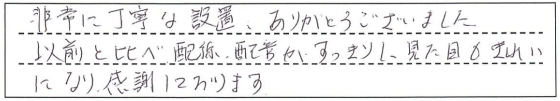 非常に丁寧な設置、ありがとうございました
以前と比べ、配線、配管が、すっきりし、見た目もきれい
になり、感謝しております